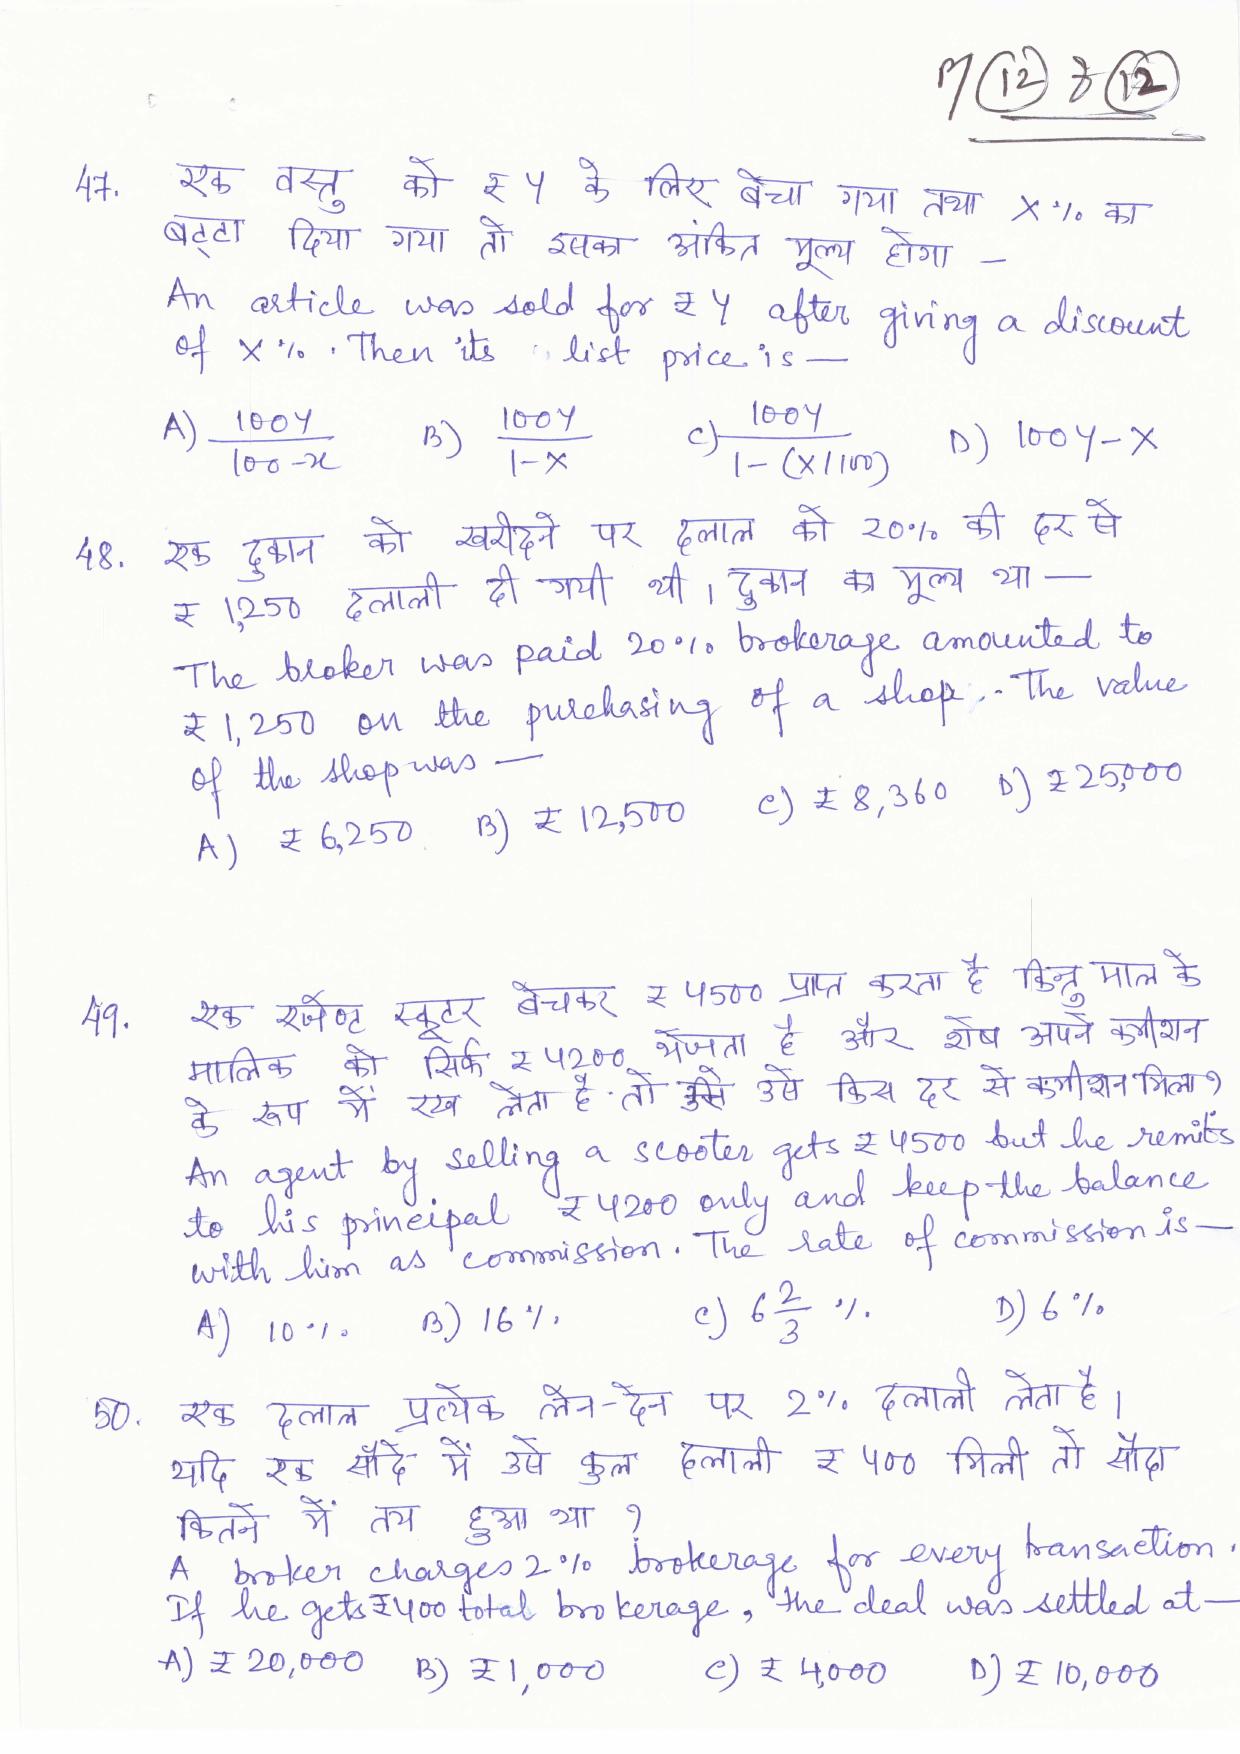 12 12
47. एक वस्तु को ₹ Y के लिए बेचा गया तथा X% का
बट्टा दिया गया तो इसका अंकित मूल्य होगा —
An article was sold for ₹ Y after giving a discount
of X%. Then its list price is —
A) 100Y/100-x B) 100Y/1-X C) 100Y/1-(X/100) D) 100Y-X
48. एक दुकान को खरीदने पर दलाल को 20% की दर से
₹ 1,250 दलाली दी गयी थी। दुकान का मूल्य था —
The broker was paid 20% brokerage amounted to
₹ 1,250 on the purchasing of a shop. The value
of the shop was —
A) ₹ 6,250 B) ₹ 12,500 C) ₹ 8,360 D) ₹ 25,000
49. एक एजेण्ट स्कूटर बेचकर ₹ 4500 प्राप्त करता है किन्तु माल के
मालिक को सिर्फ ₹ 4200 भेजता है और शेष अपने कमीशन
के रूप में रख लेता है. तो उसे किस दर से कमीशन मिला?
An agent by selling a scooter gets ₹ 4500 but he remits
to his principal ₹ 4200 only and keep the balance
with him as commission. The rate of commission is —
A) 10% B) 16% C) 6 2/3 % D) 6%
50. एक दलाल प्रत्येक लेन-देन पर 2% दलाली लेता है।
यदि एक सौदे में उसे कुल दलाली ₹ 400 मिली तो सौदा
कितने में तय हुआ था?
A broker charges 2% brokerage for every transaction.
If he gets ₹400 total brokerage, the deal was settled at —
A) ₹ 20,000 B) ₹ 1,000 C) ₹ 4,000 D) ₹ 10,000